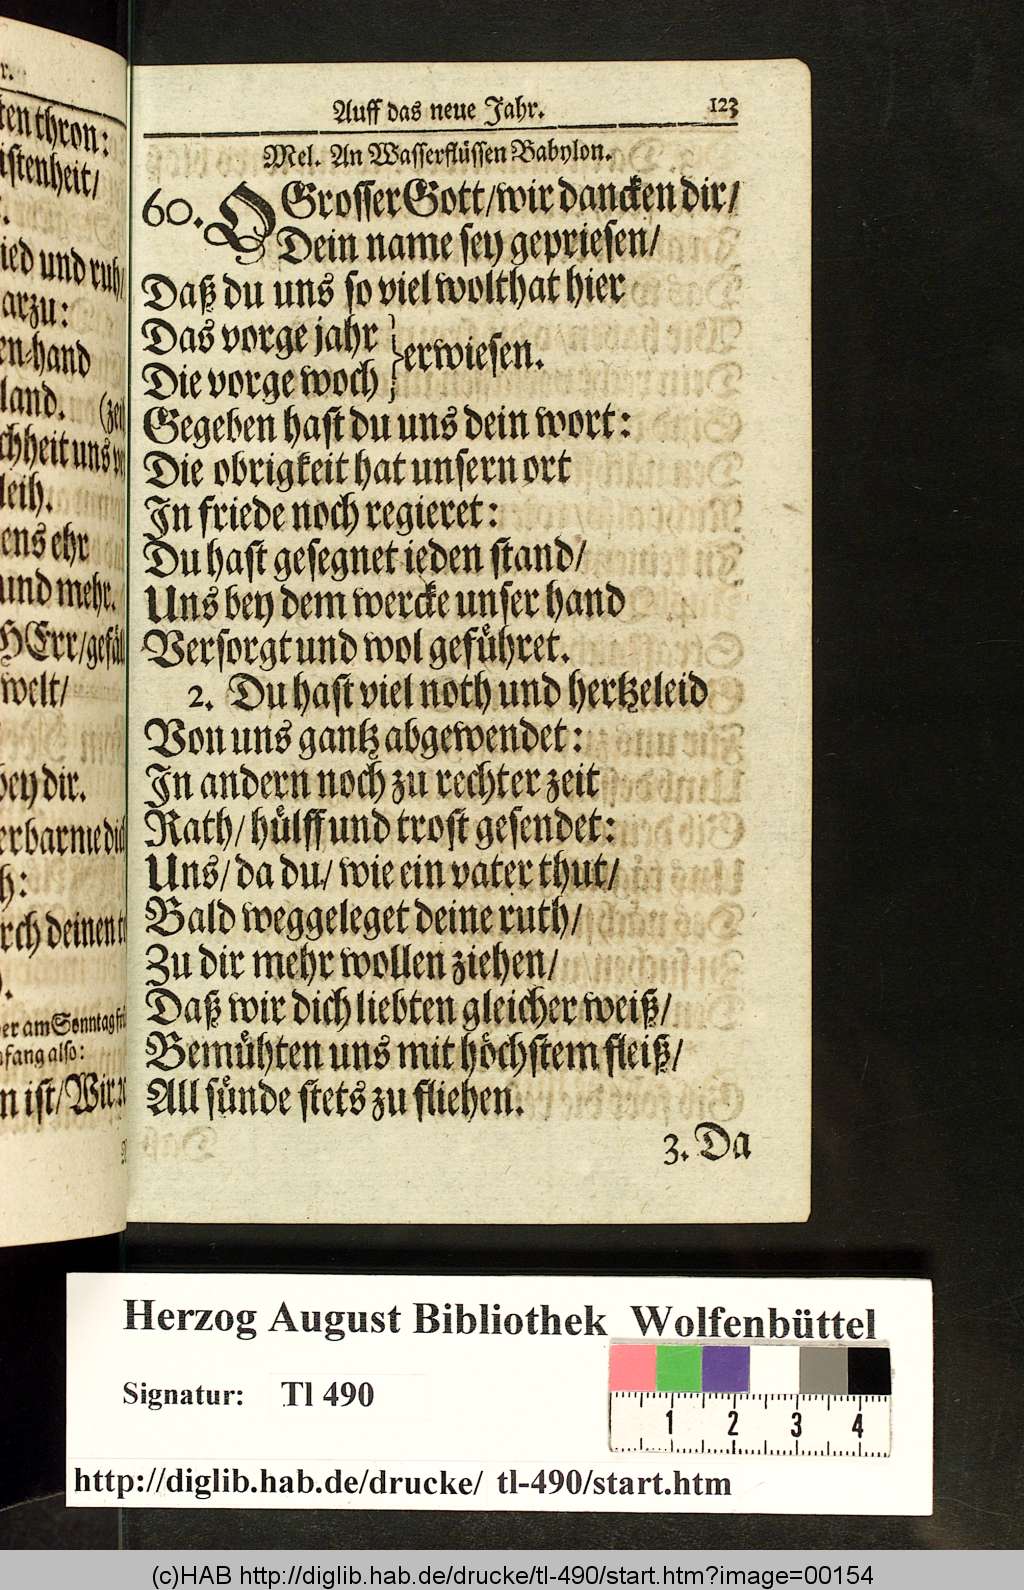 r.
ten thron:
istenheit/
ied und ruh/
arzu:
en-hand
land. (zeit
chheit uns
leih.
ens ehr
und mehr.
HErr/gefäll
welt/
bey dir.
erbarme dich
h:
rch deinen
er am Sonntag
nfang also:
n ist/Wir
Auff das neue Jahr. 123
Mel. An Wasserflüssen Babylon.
60. O Grosser Gott/wir dancken dir/
Dein name sey gepriesen/
Daß du uns so viel wolthat hier
Das vorge jahr
} erwiesen.
Die vorge woch
Gegeben hast du uns dein wort:
Die obrigkeit hat unsern ort
In friede noch regieret:
Du hast gesegnet ieden stand/
Uns bey dem wercke unser hand
Versorgt und wol geführet.
2. Du hast viel noth und hertzeleid
Von uns gantz abgewendet:
In andern noch zu rechter zeit
Rath/ hülff und trost gesendet:
Uns/ da du/ wie ein vater thut/
Bald weggeleget deine ruth/
Zu dir mehr wollen ziehen/
Daß wir dich liebten gleicher weiß/
Bemühten uns mit höchstem fleiß/
All sünde stets zu fliehen.
3. Da
Herzog August Bibliothek Wolfenbüttel
Signatur: Tl 490
1 2 3 4
http://diglib.hab.de/drucke/ tl-490/start.htm
(c)HAB http://diglib.hab.de/drucke/tl-490/start.htm?image=00154